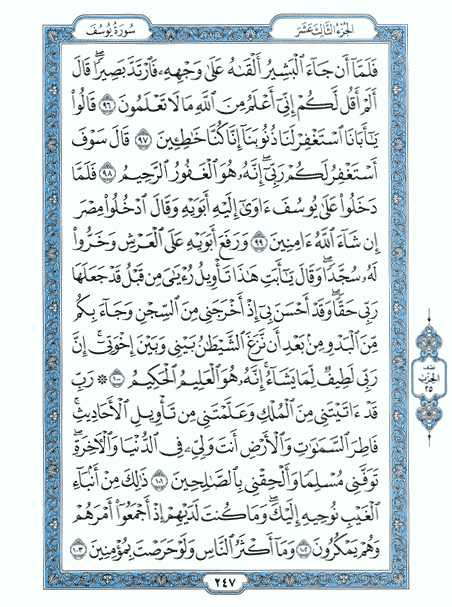 الجزء الثالث عشر
سورة يوسف
فَلَمَّآ أَن جَآءَ ٱلْبَشِيرُ أَلْقَىٰهُ عَلَىٰ وَجْهِهِۦ فَٱرْتَدَّ بَصِيرًۭا ۖ قَالَ
أَلَمْ أَقُل لَّكُمْ إِنِّىٓ أَعْلَمُ مِنَ ٱللَّهِ مَا لَا تَعْلَمُونَ ٩٦ قَالُوا۟
يَٰٓأَبَانَا ٱسْتَغْفِرْ لَنَا ذُنُوبَنَآ إِنَّا كُنَّا خَٰطِـِٔينَ ٩٧ قَالَ سَوْفَ
أَسْتَغْفِرُ لَكُمْ رَبِّىٓ ۖ إِنَّهُۥ هُوَ ٱلْغَفُورُ ٱلرَّحِيمُ ٩٨ فَلَمَّا
دَخَلُوا۟ عَلَىٰ يُوسُفَ ءَاوَىٰٓ إِلَيْهِ أَبَوَيْهِ وَقَالَ ٱدْخُلُوا۟ مِصْرَ
إِن شَآءَ ٱللَّهُ ءَامِنِينَ ٩٩ وَرَفَعَ أَبَوَيْهِ عَلَى ٱلْعَرْشِ وَخَرُّوا۟
لَهُۥ سُجَّدًۭا ۖ وَقَالَ يَٰٓأَبَتِ هَٰذَا تَأْوِيلُ رُءْيَٰىَ مِن قَبْلُ قَدْ جَعَلَهَا
رَبِّى حَقًّۭا ۖ وَقَدْ أَحْسَنَ بِىٓ إِذْ أَخْرَجَنِى مِنَ ٱلسِّجْنِ وَجَآءَ بِكُم
مِّنَ ٱلْبَدْوِ مِنۢ بَعْدِ أَن نَّزَغَ ٱلشَّيْطَٰنُ بَيْنِى وَبَيْنَ إِخْوَتِىٓ ۚ إِنَّ
رَبِّى لَطِيفٌۭ لِّمَا يَشَآءُ ۚ إِنَّهُۥ هُوَ ٱلْعَلِيمُ ٱلْحَكِيمُ ١٠٠ ۞ رَبِّ
قَدْ ءَاتَيْتَنِى مِنَ ٱلْمُلْكِ وَعَلَّمْتَنِى مِن تَأْوِيلِ ٱلْأَحَادِيثِ ۚ
فَاطِرَ ٱلسَّمَٰوَٰتِ وَٱلْأَرْضِ أَنتَ وَلِىِّۦ فِى ٱلدُّنْيَا وَٱلْءَاخِرَةِ ۖ
تَوَفَّنِى مُسْلِمًۭا وَأَلْحِقْنِى بِٱلصَّٰلِحِينَ ١٠١ ذَٰلِكَ مِنْ أَنۢبَآءِ
ٱلْغَيْبِ نُوحِيهِ إِلَيْكَ ۖ وَمَا كُنتَ لَدَيْهِمْ إِذْ أَجْمَعُوٓا۟ أَمْرَهُمْ
وَهُمْ يَمْكُرُونَ ١٠٢ وَمَآ أَكْثَرُ ٱلنَّاسِ وَلَوْ حَرَصْتَ بِمُؤْمِنِينَ ١٠٣
نصف
الحزب
٢٥
٢٤٧